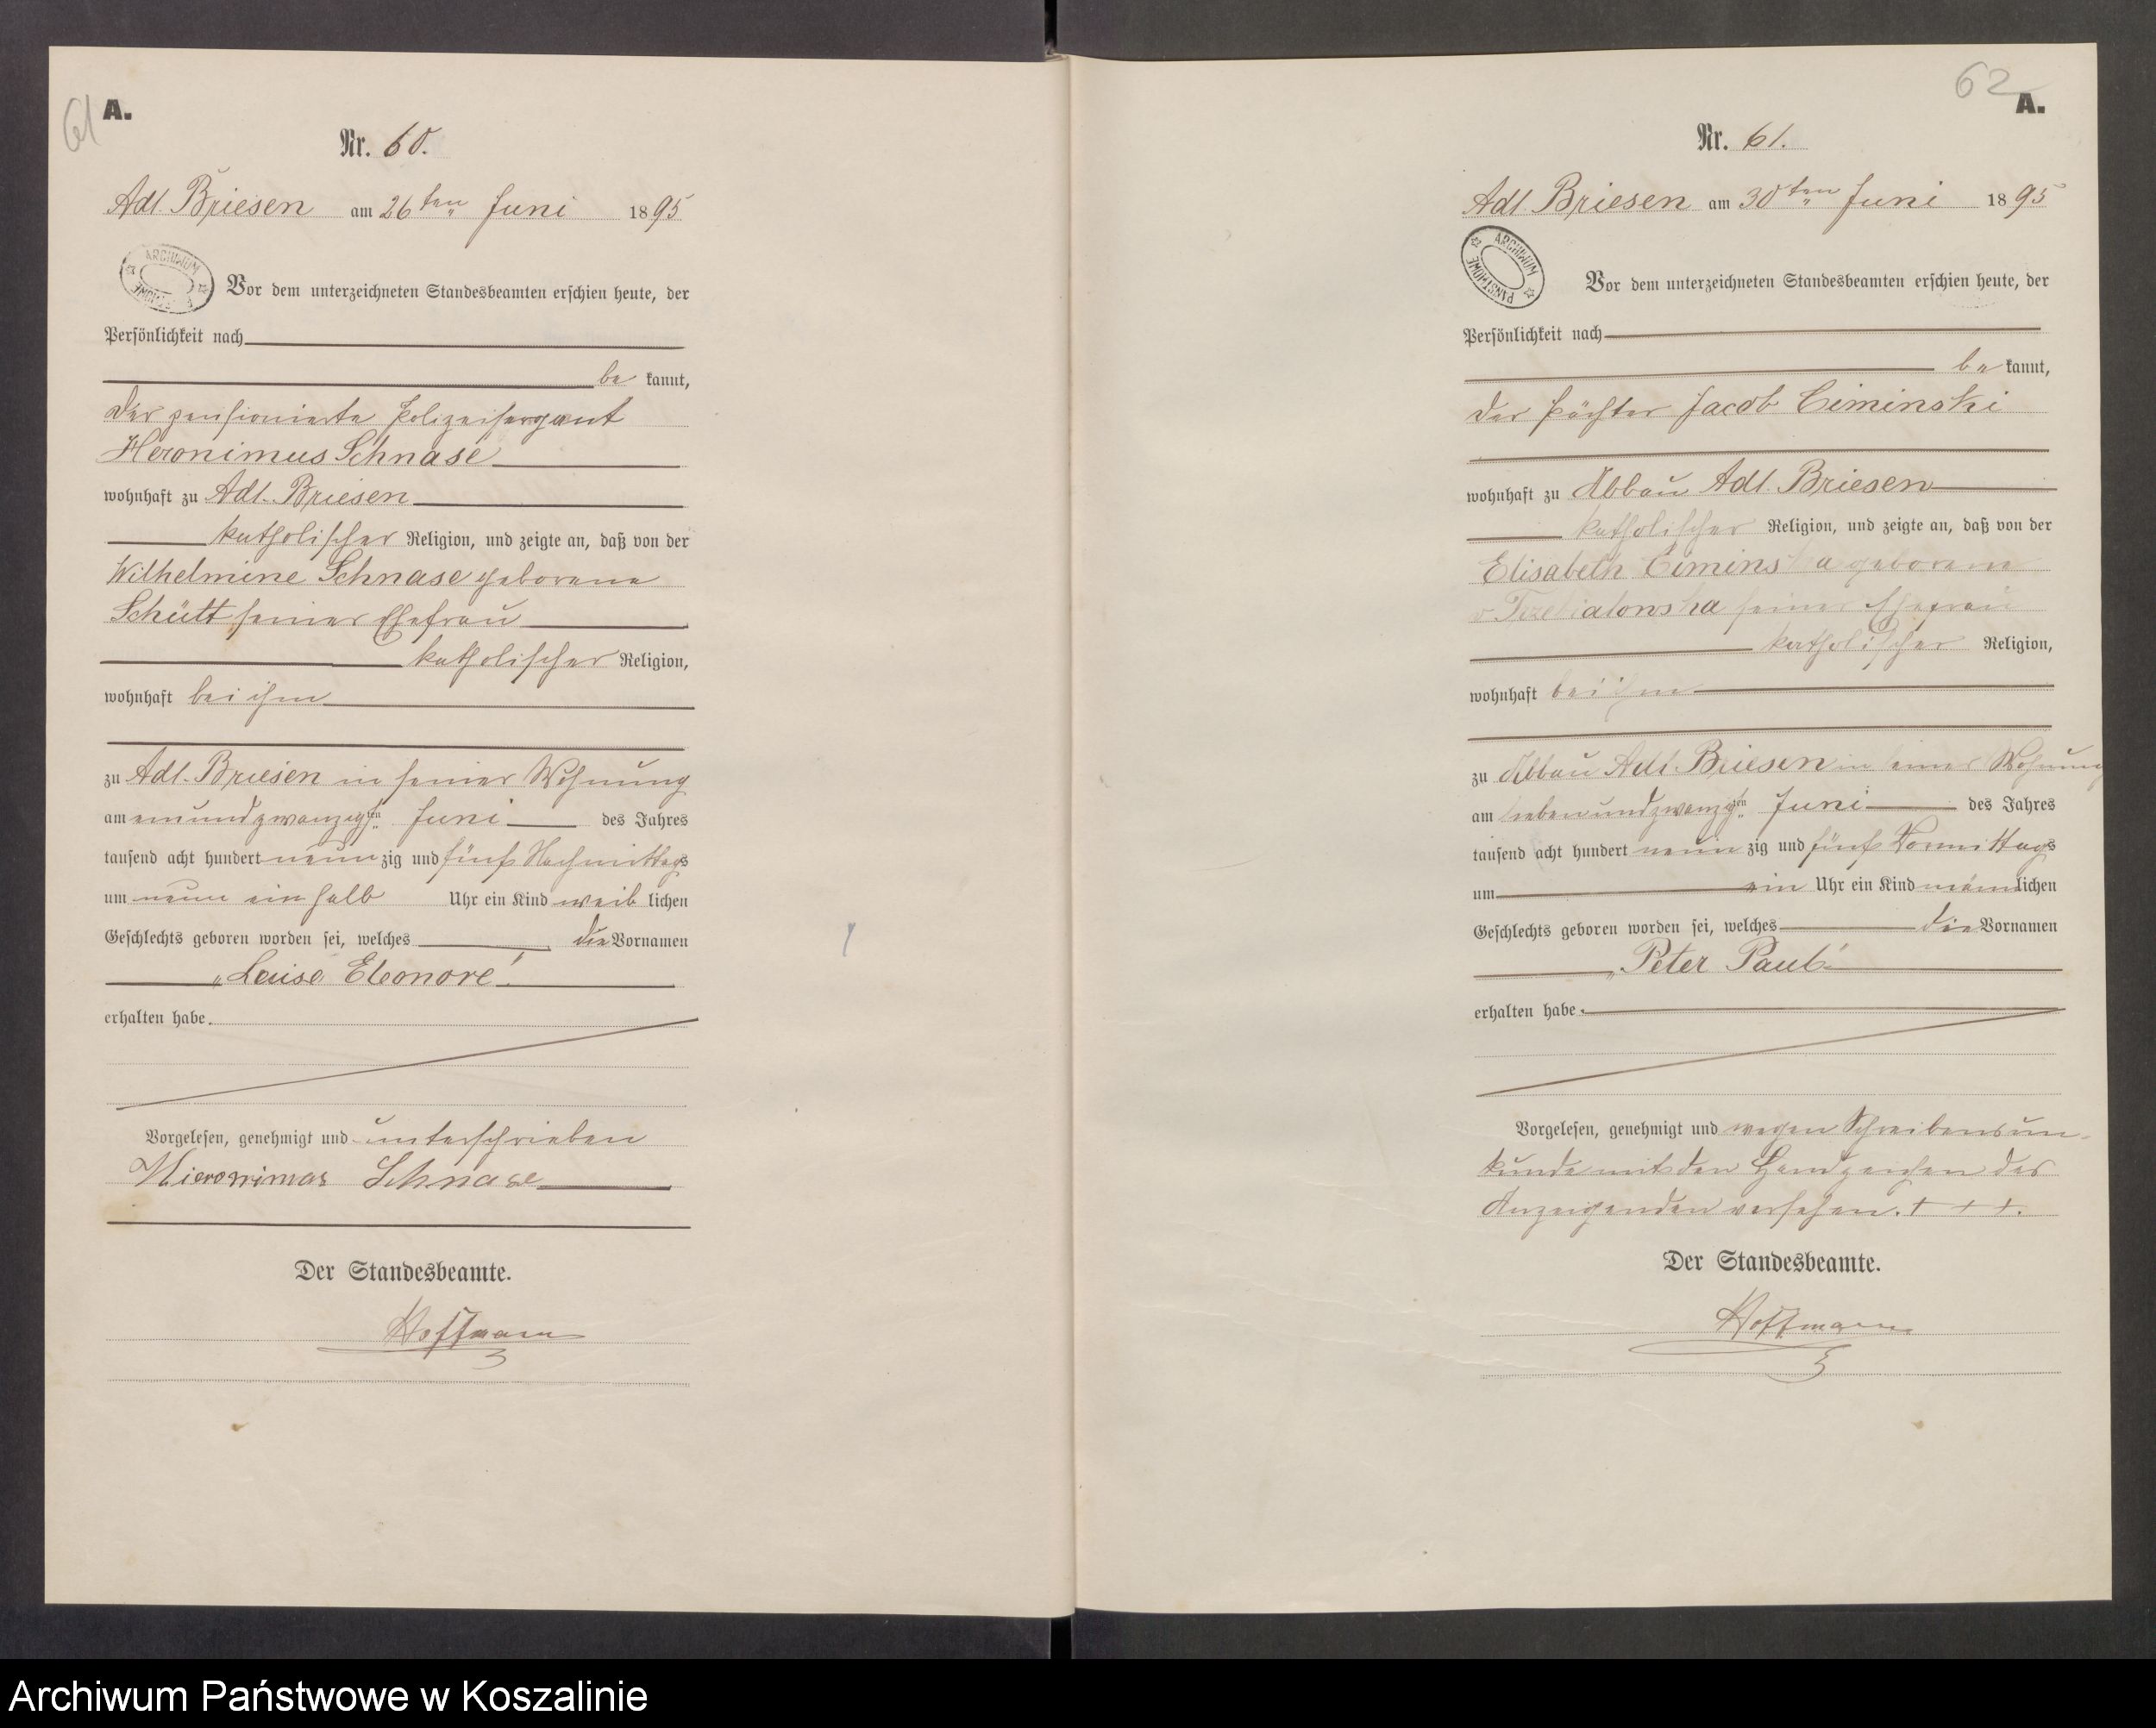 61
A.
Nr. 60.
Adl. Briesen am 26ten Juni 1895
ARCHIWUM
Vor dem unterzeichneten Standesbeamten erschien heute, der
Persönlichkeit nach
be kannt,
der pensionierte Polizeisergant
Heronimus Schnase
wohnhaft zu Adl. Briesen
katholischer Religion, und zeigte an, daß von der
Wilhelmine Schnase geborene
Schütt seiner Ehefrau
katholischer Religion,
wohnhaft bei ihm
zu Adl. Briesen in seiner Wohnung
am einundzwanzigsten Juni des Jahres
tausend acht hundert neun zig und fünf Nachmittags
um neun ein halb Uhr ein Kind weib lichen
Geschlechts geboren worden sei, welches die Vornamen
„Luise Eleonore“
erhalten habe.
Vorgelesen, genehmigt und unterschrieben
Hieronimas Schnase
Der Standesbeamte.
Hoffmann
62
A.
Nr. 61.
Adl Briesen am 30ten Juni 1895
ARCHIWUM PAŃSTWOWE
Vor dem unterzeichneten Standesbeamten erschien heute, der
Persönlichkeit nach
be kannt,
der Pächter Jacob Ciminski
wohnhaft zu Abbau Adl. Briesen
katholischer Religion, und zeigte an, daß von der
Elisabeth Ciminska geborene
v. seiner Ehefrau
katholischer Religion,
wohnhaft bei ihm
zu Abbau Adl. Briesen in seiner Wohnung
am siebenundzwanzigsten Juni des Jahres
tausend acht hundert neun zig und fünf Vormittags
um ein Uhr ein Kind männlichen
Geschlechts geboren worden sei, welches die Vornamen
„Peter Paul“
erhalten habe.
Vorgelesen, genehmigt und wegen Schreibensun-
kunde mit den Handzeichen des
Anzeigenden versehen. + + +.
Der Standesbeamte.
Hoffmann
Archiwum Państwowe w Koszalinie